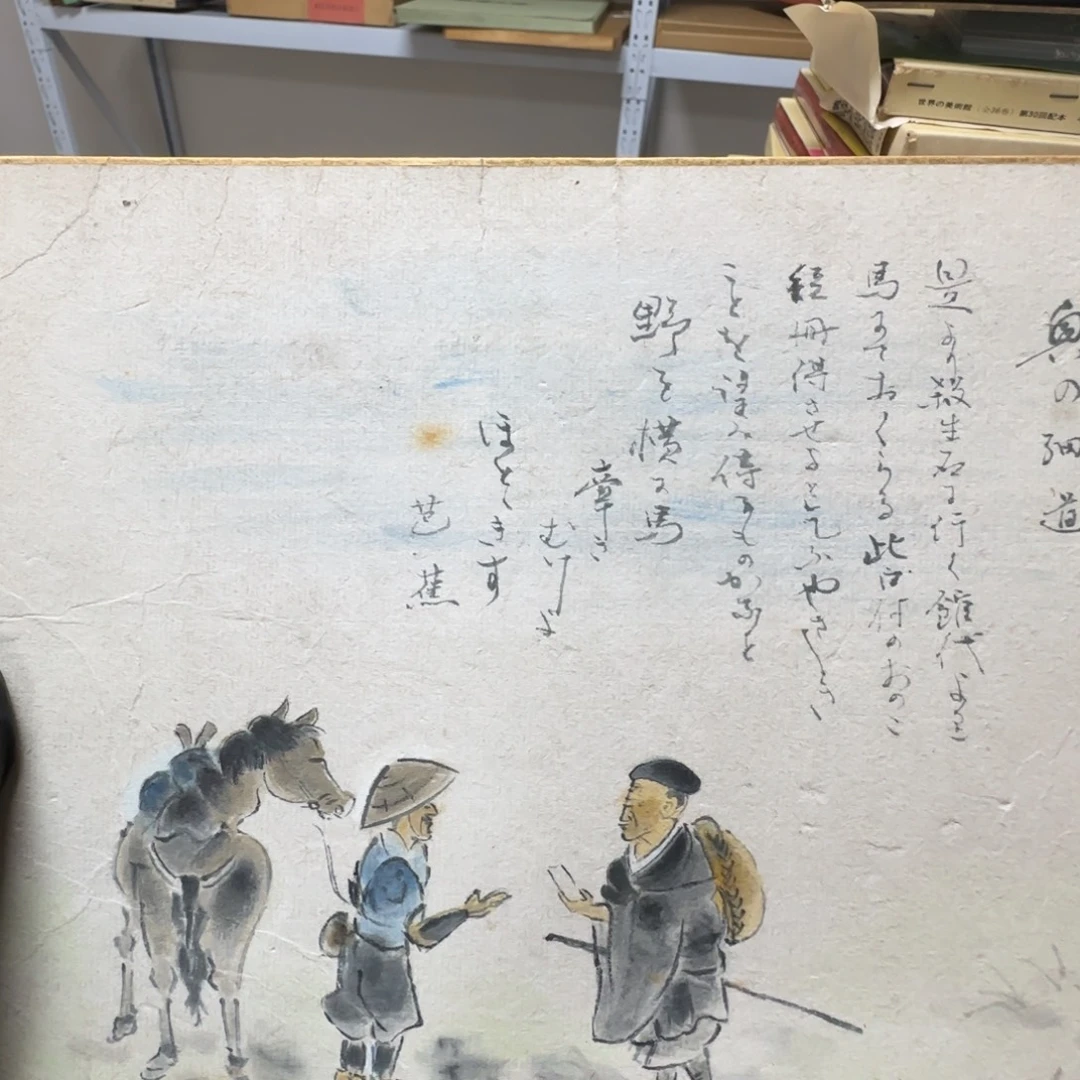 世界の美術館 第30回配本
奥の細道
是より殺生石に行く館代より
馬にておくらる此口付のおのこ
短冊得させよと乞ふやさしき
ことを望み侍るものかなと
野を横に馬
牽き
むけよ
ほとゝきす
芭蕉